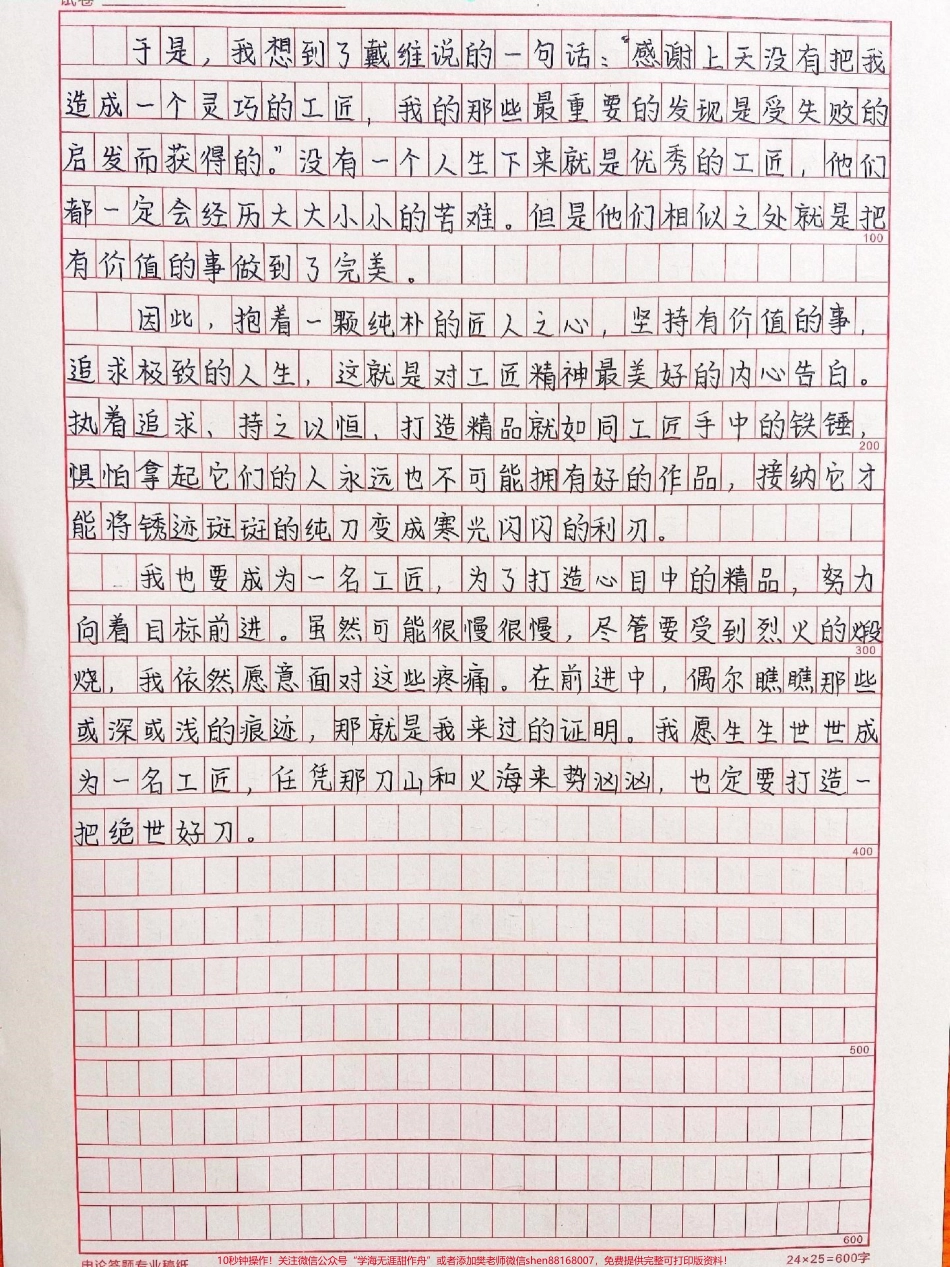 试卷
于是，我想到了戴维说的一句话：“感谢上天没有把我
造成一个灵巧的工匠，我的那些最重要的发现是受失败的
启发而获得的。”没有一个人生下来就是优秀的工匠，他们
都一定会经历大大小小的苦难。但是他们相似之处就是把
100
有价值的事做到了完美。
因此，抱着一颗纯朴的匠人之心，坚持有价值的事，
追求极致的人生，这就是对工匠精神最美好的内心告白。
执着追求、持之以恒、打造精品就如同工匠手中的铁锤，
200
惧怕拿起它们的人永远也不可能拥有好的作品，接纳它才
能将锈迹斑斑的纯刀变成寒光闪闪的利刃。
我也要成为一名工匠，为了打造心目中的精品，努力
向着目标前进。虽然可能很慢很慢，尽管要受到烈火的煅
300
烧，我依然愿意面对这些疼痛。在前进中，偶尔瞧瞧那些
或深或浅的痕迹，那就是我来过的证明。我愿生生世世成
为一名工匠，任凭那刀山和火海来势汹汹，也定要打造一
把绝世好刀。
400
500
600
申论答题专业稿纸
10秒钟操作！关注微信公众号“学海无涯甜作舟”或者添加樊老师微信shen88168007，免费提供完整可打印版资料！
24×25=600字